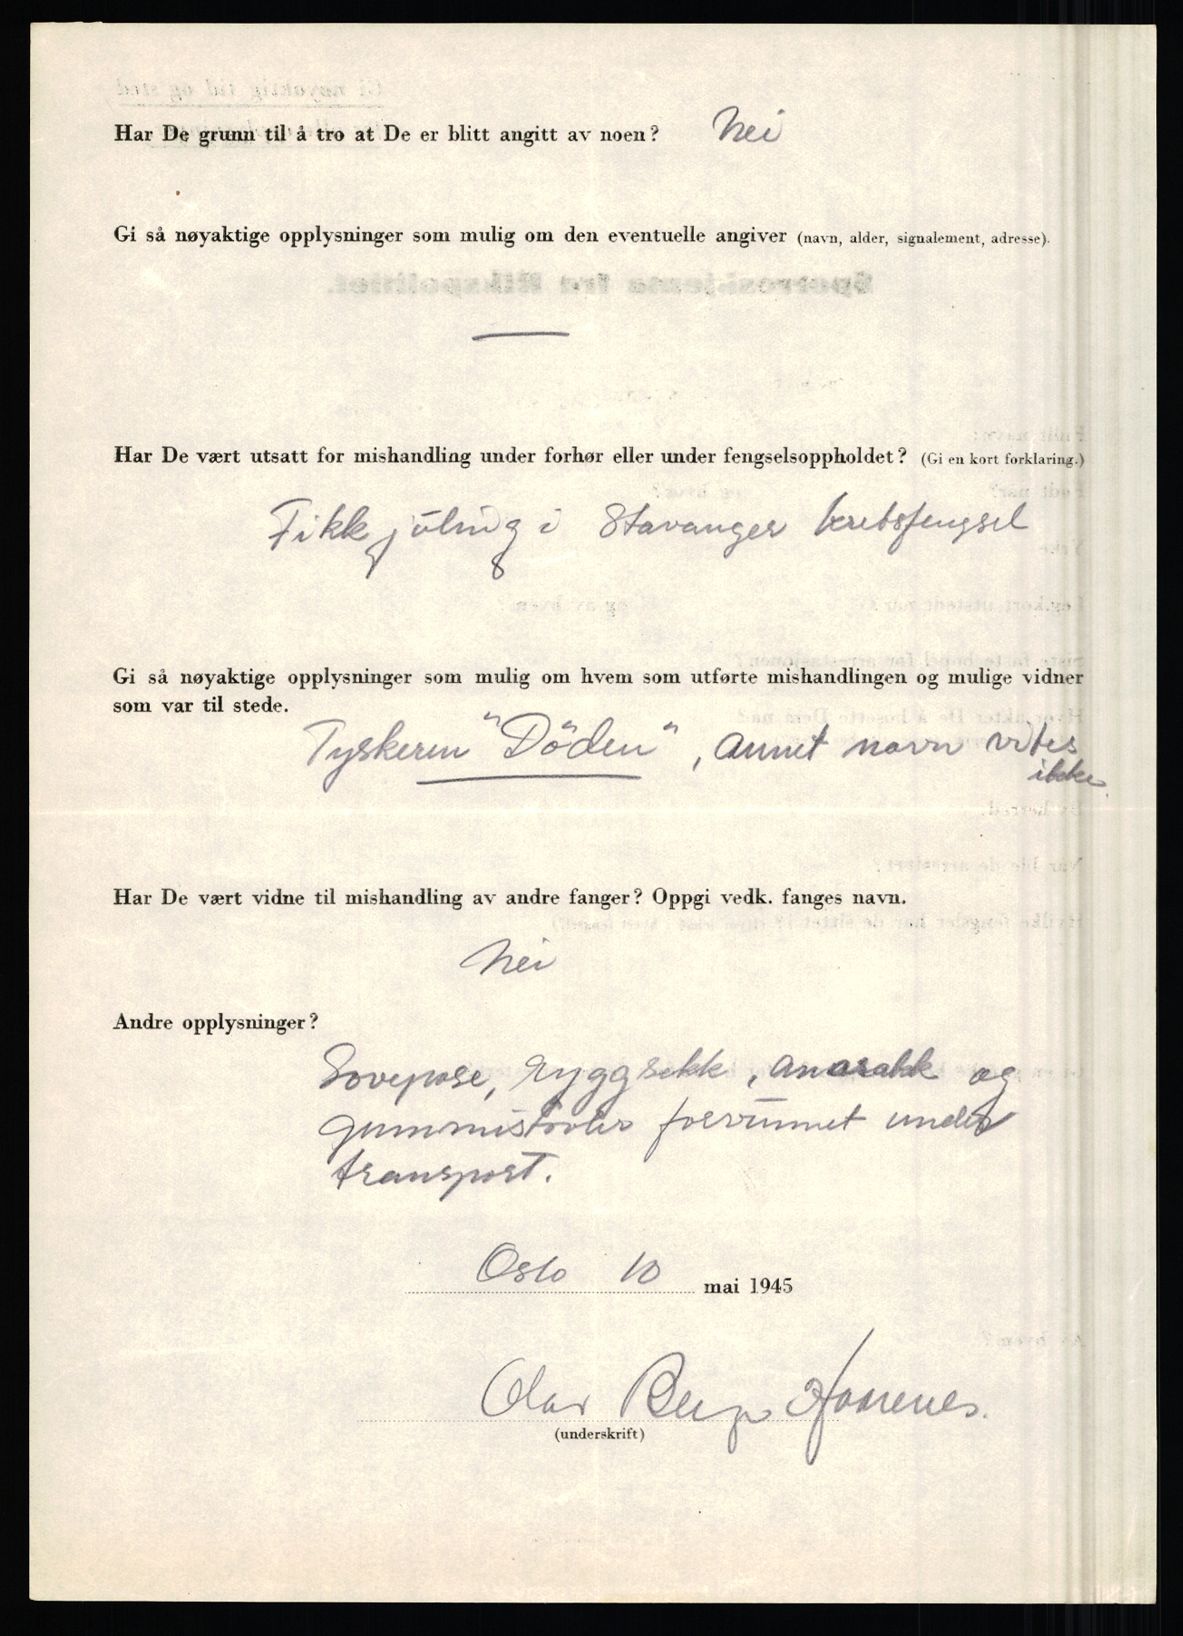 Har De grunn til å tro at De er blitt angitt av noen? Nei
Gi så nøyaktige opplysninger som mulig om den eventuelle angiver (navn, alder, signalement, adresse).
Har De vært utsatt for mishandling under forhør eller under fengselsoppholdet? (Gi en kort forklaring.)
Fikk juling i Stavanger kretsfengsel
Gi så nøyaktige opplysninger som mulig om hvem som utførte mishandlingen og mulige vidner
som var til stede.
Tyskeren "Döden", annet navn vites
ikke.
Har De vært vidne til mishandling av andre fanger? Oppgi vedk. fanges navn.
Nei
Andre opplysninger?
Sovepose, ryggsekk, anorakk og
gummistøvler forsvunnet under
transport.
Oslo 10 mai 1945
Olav Berge
(underskrift)